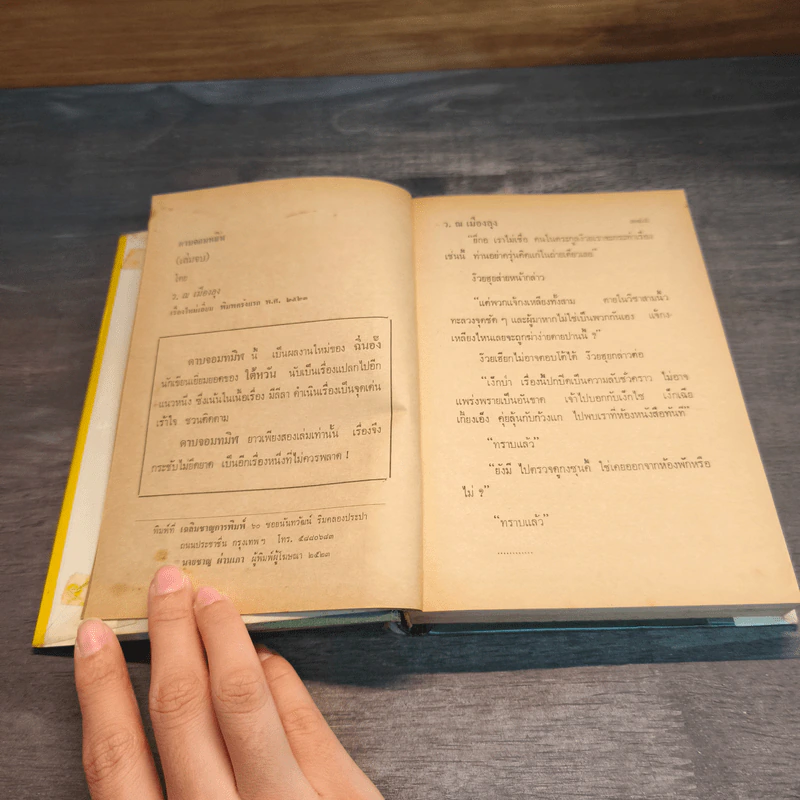 ดาบจอมทมิฬ
(เล่มจบ)
โดย
ว. ณ เมืองลุง
เรื่องใหม่เอี่ยม พิมพ์ครั้งแรก พ.ศ. ๒๕๒๓
ดาบจอมทมิฬ นี้ เป็นผลงานใหม่ของ ฉิ่นอัง
นักเขียนเยี่ยมยอดของ ไต้หวัน นับเป็นเรื่องแปลกไปอีก
แนวหนึ่ง ซึ่งเน้นในเนื้อเรื่อง มีลีลา ดำเนินเรื่องเป็นจุดเด่น
เร้าใจ ชวนติดตาม
ดาบจอมทมิฬ ยาวเพียงสองเล่มเท่านั้น เรื่องจึง
กระชับไม่ยืดยาด เป็นอีกเรื่องหนึ่งที่ไม่ควรพลาด !
พิมพ์ที่ เฉลิมชาญการพิมพ์ ๖๐ ซอยนันทวัฒน์ ริมคลองประปา
ถนนประชาชื่น กรุงเทพฯ โทร. ๕๘๘๐๖๘๓
ผ่านเภา ผู้พิมพ์ผู้โฆษณา ๒๕๒๓
ว. ณ เมืองลุง
"อีกอ เราไม่เชื่อ คนในตระกูลงิ้วเราจะกระทำเรื่อง
เช่นนี้ ท่านอย่าครุ่นคิดแก่ในถ่ายเดียวเลย"
งิ้วฮุยส่ายหน้ากล่าว
"แต่พวกแจ้กงเหลียงทั้งสาม ตายในวิชาสามนิ้ว
ทะลวงจุดชัด ๆ และผู้มาหากไม่ใช่เป็นพวกกันเอง แจ้กง-
เหลียงไหนเลยจะถูกฆ่าง่ายดายปานนี้ ?"
งิ้วเฮียกไม่อาจตอบโต้ได้ งิ้วฮุยกล่าวต่อ
"เง็กบ้า เรื่องนี้ปกปิดเป็นความลับชั่วคราว ไม่อาจ
แพร่งพรายเป็นอันขาด เจ้าไปบอกกับเง็กไซ เง็กเฉีย
เกี้ยงเอ็ง คุ่ยลุ้นกับก้วงแก ไปพบเราที่ห้องหนังสือทันที"
"ทราบแล้ว"
"ยังมี ไปตรวจดูกงซุนตี้ ใช่เคยออกจากห้องพักหรือ
ไม่ ?"
"ทราบแล้ว"
............